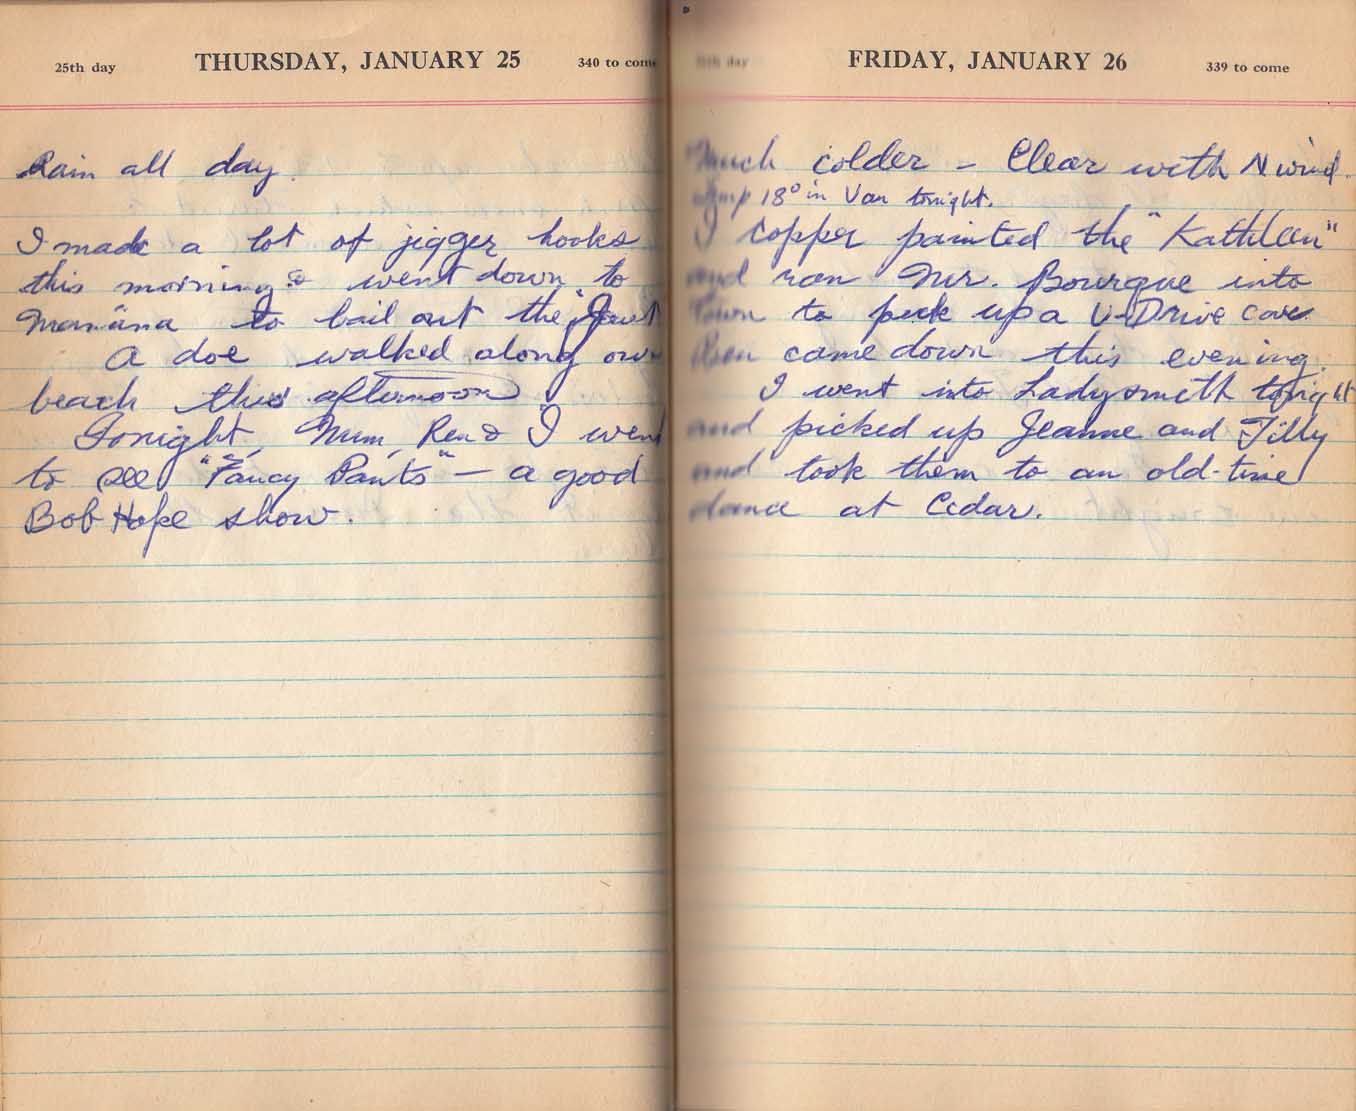 25th day THURSDAY, JANUARY 25 340 to come
Rain all day.
I made a lot of jigger hooks
this morning & went down to
Manãna to bail out the "
A doe walked along our
beach this afternoon
Tonight, Mum, Ren & I went
to see "Fancy Pants" – a good
Bob Hope show.
26th day FRIDAY, JANUARY 26 339 to come
Much colder – Clear with N wind.
Temp 18° in Van tonight.
I copper painted the "Kathleen"
and ran Mr. Bourque into
Town to pick up a U-Drive car.
Ren came down this evening.
I went into Ladysmith tonight
and picked up Jeanne and Tilly
and took them to an old-time
dance at Cedar.